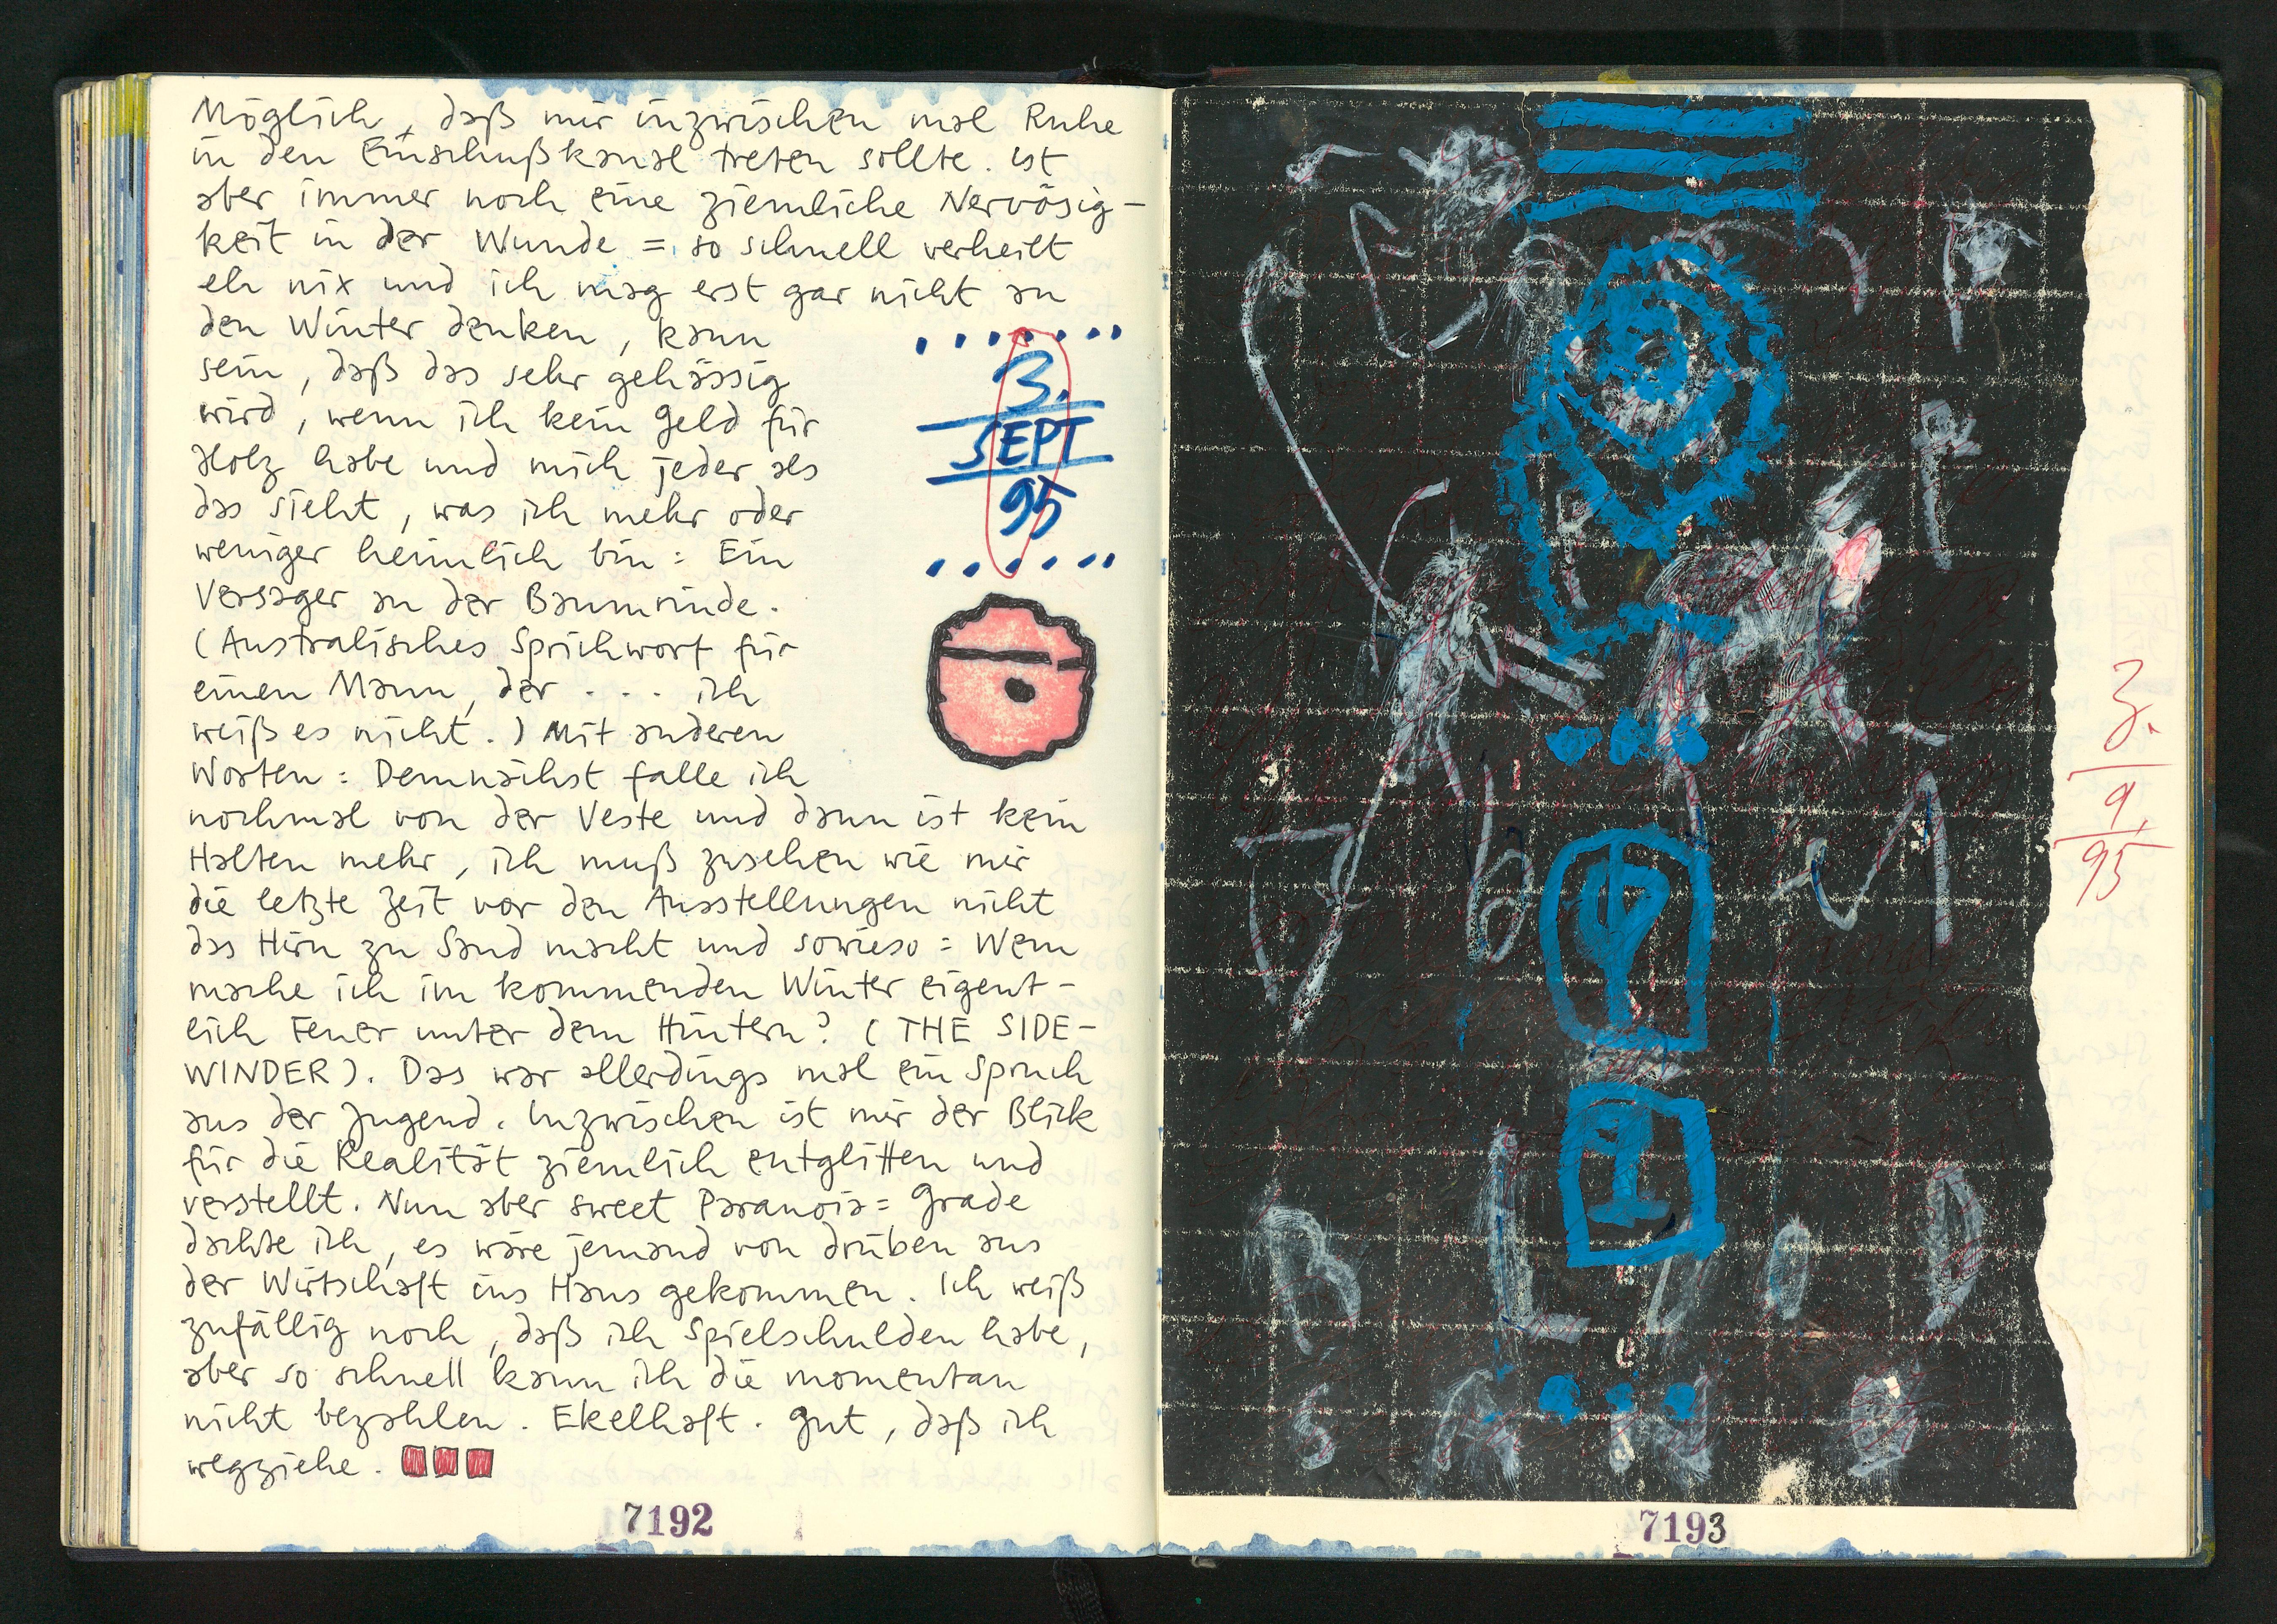 Möglich, daß mir inzwischen mal Ruhe
in den Einschußkanal treten sollte. ist
aber immer noch eine ziemliche Nervösig-
keit in der Wunde = so schnell verheilt
eh nix und ich mag erst gar nicht an
den Winter denken, kann
sein, daß das sehr gehässig
wird, wenn ich kein Geld für
Holz habe und mich jeder als
das sieht, was ich mehr oder
weniger heimlich bin: Ein
Versager an der Baumrinde.
(Australisches Sprichwort für
einen Mann, der . . . ich
weiß es nicht.) Mit anderen
Worten: Demnächst falle ich
nochmal von der Veste und dann ist kein
Halten mehr, ich muß zusehen wie mir
die letzte Zeit vor den Ausstellungen nicht
das Hirn zu Sand macht und sowieso: Wem
mache ich im kommenden Winter eigent-
lich Feuer unter dem Hintern? (THE SIDE-
WINDER). Das war allerdings mal ein Spruch
aus der Jugend. Inzwischen ist mir der Blick
für die Realität ziemlich entglitten und
verstellt. Nun aber sweet Paranoia: Grade
dachte ich, es wäre jemand von drüben aus
der Wirtschaft ins Haus gekommen. Ich weiß
zufällig noch, daß ich Spielschulden habe,
aber so schnell kann ich die momentan
nicht bezahlen. Ekelhaft. Gut, daß ich
wegziehe.
3.
SEPT
95
7192
3.
9.
95
7193